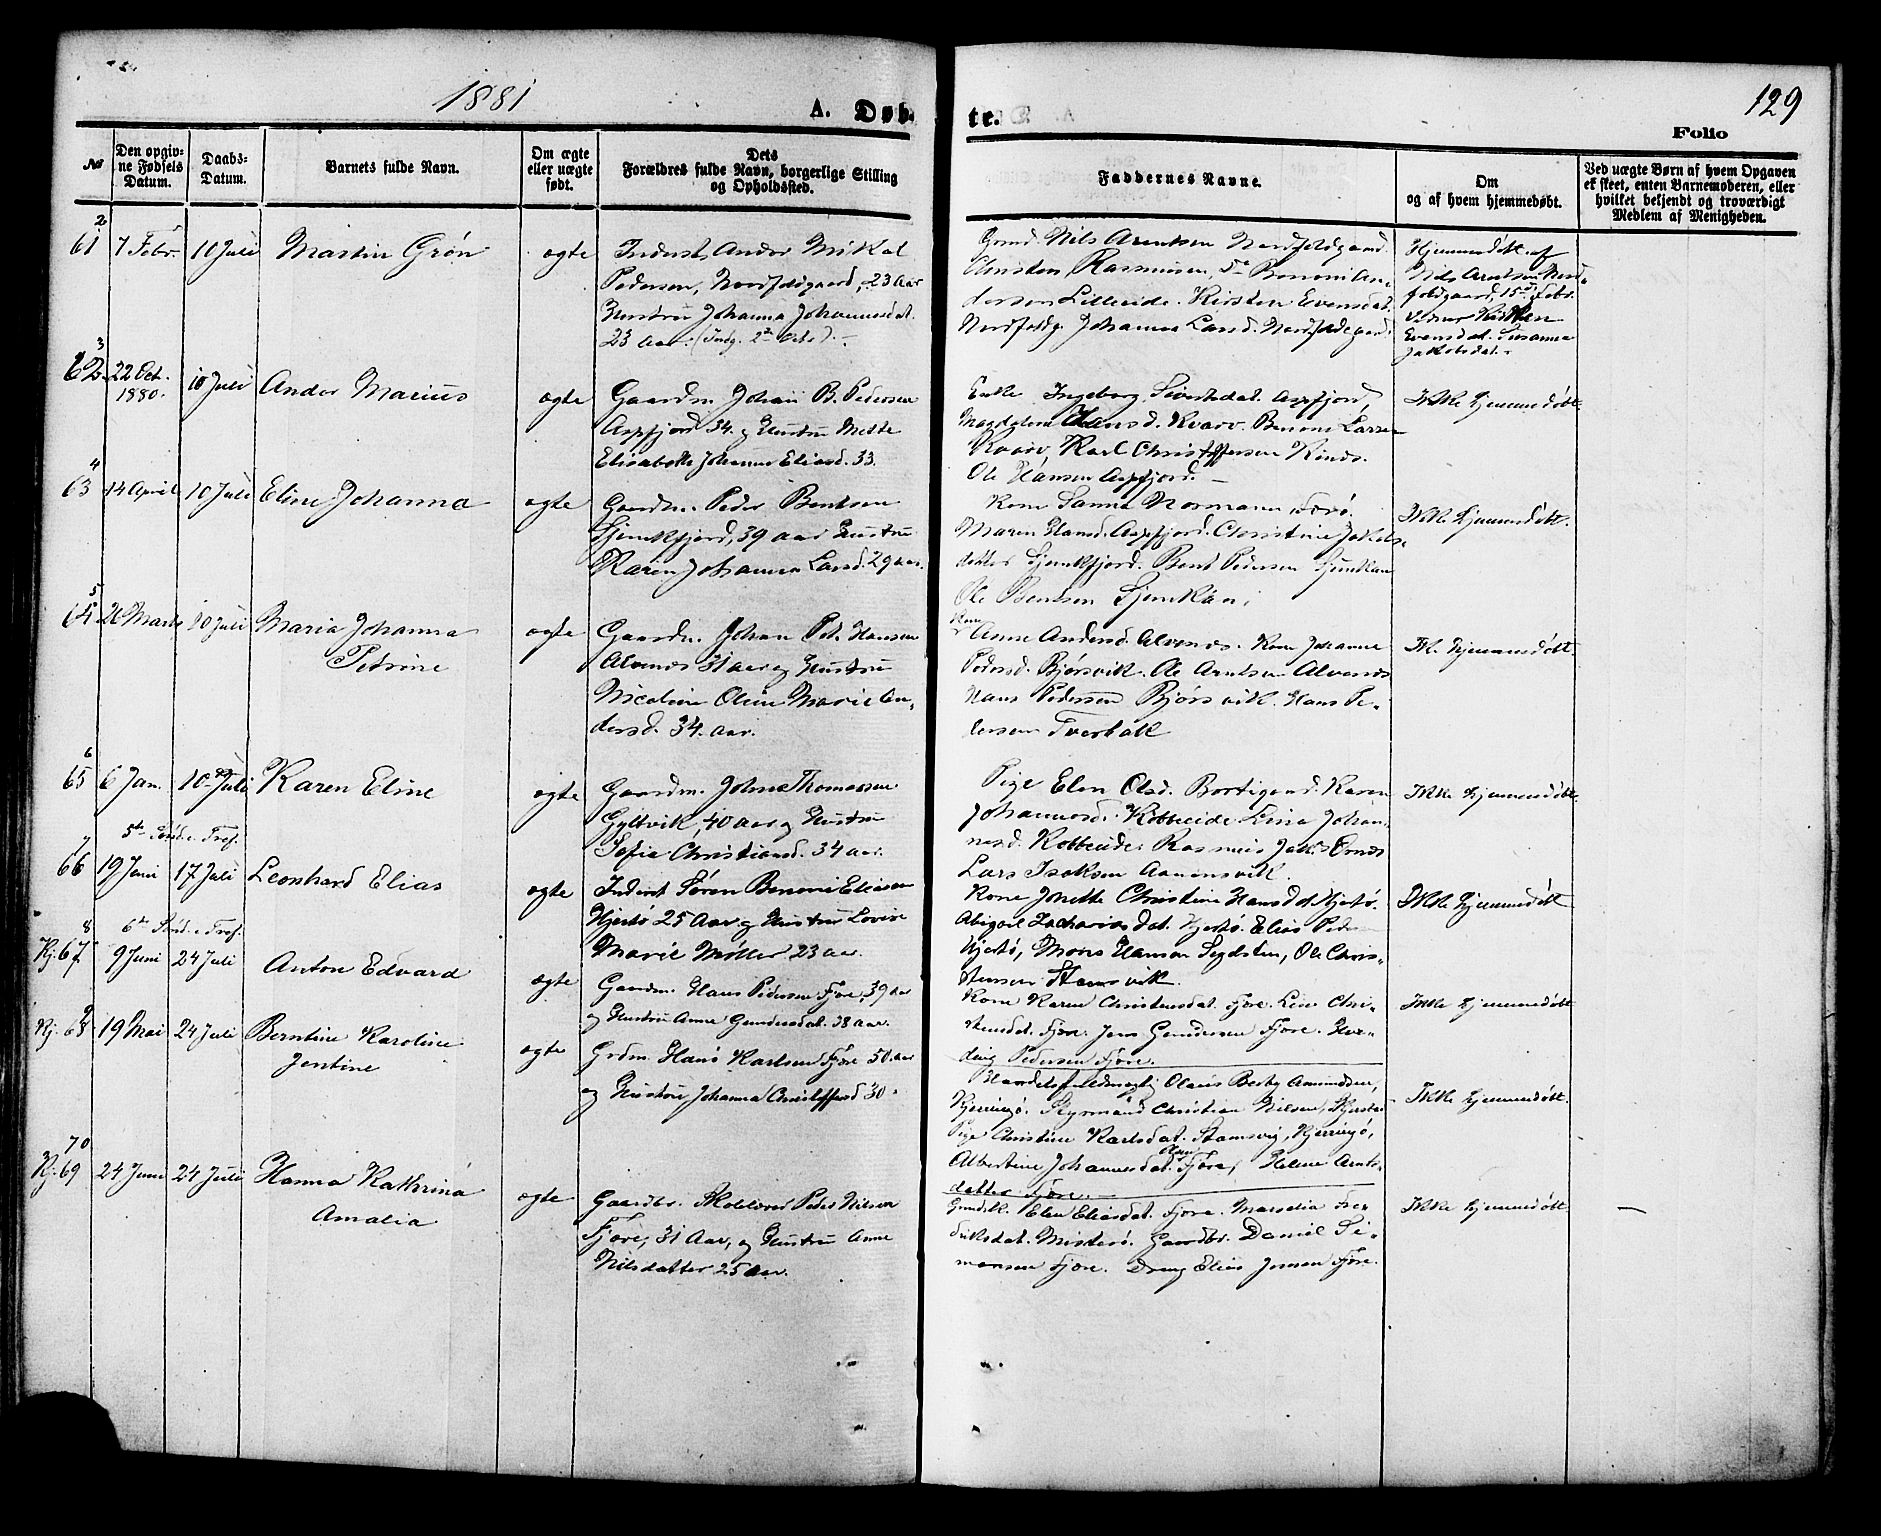 1881
A. Døb-
te.
129
Folio
No
Den opgiv-
ne Fødsels
Datum.
Daabs-
Datum.
Barnets fulde Navn.
Om ægte
eller uægte
født.
Dets
Forældres fulde Navn, borgerlige Stilling
og Opholdssted.
Faddernes Navne.
Om
og af hvem hjemmedøbt.
Ved uægte Børn af hvem Opgaven
er skeet, enten Barnemoderen, eller
hvilket bekjendt og troværdigt
Medlem af Menigheden.
2
61 7 Febr. 10 Juli Martin Grøn ægte Inderst Andor Mikal
Pedersen, Nordfoldgaard, 23 Aar
Hustru Johanna Johannesdat.
23 Aar.
Nils Arentsen Nordfoldgaard.
Christen Rasmussen, Benoni An-
dersen Lilleeide. Kirsten Evensdat.
Nordfoldg. Johanna Larsd. Nordfoldgaard.
Hjemmedøbt af
Nils Arntsen Nord-
foldgaard, 15de Febr.
Vidner Kirsten
Evensdat. Susanna
Jakobsdat.
3
62. 22 Oct. 1880. 10 Juli Andor Marius ægte Gaardm. Johan B. Pedersen
Aspfjord 34. og Hustru Mette
Elisabeth Johanna Eliasd. 33.
Enke Ingeborg Sivertsdat. Aspfjord,
Magdalena Hansd. Kvarv. Benoni Larsen
Kvarv, Karl Christoffersen
Ole Hansen Aspfjord.
Ikke hjemmedøbt
4
63 14 April 10 Juli Eline Johanna ægte Gaardm. Peder Bentsen
Sjunkfjord, 39 aar Hustru
Karen Johanna Larsd. 29 aar.
Kone Sanna Normann
Maren Hansd. Aspfjord. Christine Jakobs-
datter Sjunkfjord. Bent Pedersen
Ole Bentsen
Ikke hjemmedøbt.
5
64 26 Marts 10 Juli Maria Johanna
Petrine ægte Gaardm. Johan Ped. Hansen
Alvenes 31 aar og Hustru
Nicoline Oline Marie An-
dersd. 34. aar.
Kone
Anne Andersd. Alvenes. Kone Johanna
Pedersd. Bjørsvik. Ole Arntsen Alvenes
Hans Pedersen Bjørsvik. Hans Pe-
dersen Tverbak
Ik. hjemmedøbt.
6
65 6 Jan. 10 Juli Karen Eline ægte Gaardm. Johne Thomassen
Gyltvik, 40 aar og Hustru
Sofia Christiansd. 34 aar.
Pige Elen Olsd. Karen
Johannesd. Kobbeeide Lina Johan-
nesd. Kobbeeide. Rasmus
Lars Isaksen
Ikke hjemmedøbt.
5te Sønd. e. Tref.
7
66 19 Juni 17 Juli Leonhard Elias ægte Inderst Søren Benoni Eliasen
Hjertø 25 Aar og Hustru Lovise
Marie Møller 23 aar.
Kone Jonette Christine Hansdat Hjertø.
Abigael Zachariasdat. Hjertø. Elias Peder
Hjertø, Mons Hansen Segelsten, Ole Chris-
tensen Stamsvik.
Ikke hjemmedøbt
6te Sønd. e. Tref.
8
Kj. 67 9 Juni 24 Juli Anton Edvard ægte Gaardm. Hans Pedersen Fjøre, 39 aar
og Hustru Anne Gundersdat. 38 aar.
Kone Karen Christensdat. Fjøre. Lise Chri-
stensdat. Fjøre. Jens Gundersen Fjøre. Hed-
Pedersen Fjøre.
Ikke hjemmedøbt
9
Kj. 68 19 Mai 24 Juli Berntine Karoline
Jentine ægte Grdm. Hans Karlsen Fjøre 50. aar
og Hustru, Johanna Christoffersd 30
Handelsfuldmægtig Olaus Berty Amundsen,
Kjerringø. Styrmand Christian Nilsen, Hjertø
Pige Christine Karlsdat. Stamsvig, Kjerringø,
Albertine Johannesdat. Fjøre, Helene Arnts-
datter Fjøre.
Ikke hjemmedøbt.
70
Kj. 69 24 Juni 24 Juli Hanna Kathrina
Amalia ægte Gaardbr. Skolelærer Peder Nilsen
Fjøre, 31 Aar, og Hustru Anne
Nilsdatter 25 aar.
Elen Eliasdat. Fjøre. Marselia Fre-
driksdat. Misterø. Gaardbr. Daniel Si-
monsen Fjøre. Dreng Elias Jensen Fjøre.
Ikke hjemmedøbt —